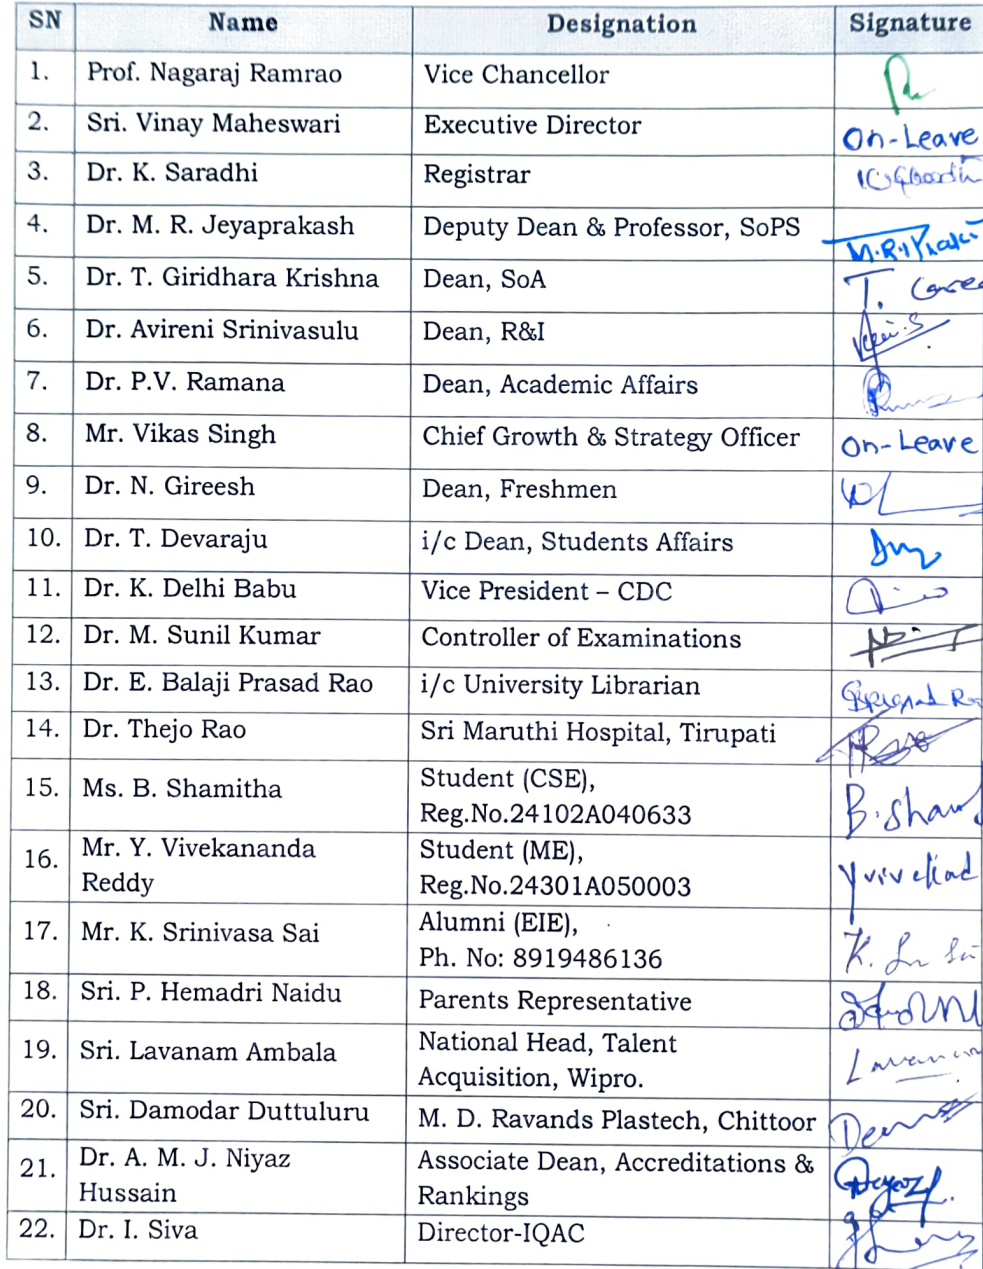 SN Name Designation Signature
1. Prof. Nagaraj Ramrao Vice Chancellor
2. Sri. Vinay Maheswari Executive Director On-Leave
3. Dr. K. Saradhi Registrar
4. Dr. M. R. Jeyaprakash Deputy Dean & Professor, SoPS
5. Dr. T. Giridhara Krishna Dean, SoA T.
6. Dr. Avireni Srinivasulu Dean, R&I
7. Dr. P.V. Ramana Dean, Academic Affairs
8. Mr. Vikas Singh Chief Growth & Strategy Officer On-Leave
9. Dr. N. Gireesh Dean, Freshmen
10. Dr. T. Devaraju i/c Dean, Students Affairs
11. Dr. K. Delhi Babu Vice President – CDC
12. Dr. M. Sunil Kumar Controller of Examinations
13. Dr. E. Balaji Prasad Rao i/c University Librarian
14. Dr. Thejo Rao Sri Maruthi Hospital, Tirupati
15. Ms. B. Shamitha Student (CSE),
Reg.No.24102A040633 B.Sham
16. Mr. Y. Vivekananda Student (ME),
Reddy Reg.No.24301A050003
17. Mr. K. Srinivasa Sai Alumni (EIE),
Ph. No: 8919486136 K.
18. Sri. P. Hemadri Naidu Parents Representative
19. Sri. Lavanam Ambala National Head, Talent
Acquisition, Wipro.
20. Sri. Damodar Duttuluru M. D. Ravands Plastech, Chittoor
21. Dr. A. M. J. Niyaz Associate Dean, Accreditations &
Hussain Rankings
22. Dr. I. Siva Director-IQAC